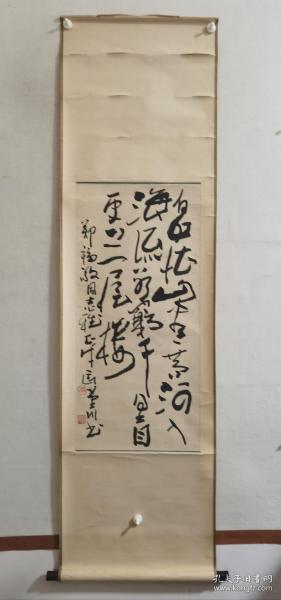 白日依山尽黄河入
海流欲穷千里目
更上一层楼
郑福敬同志雅正
孔夫子旧书网